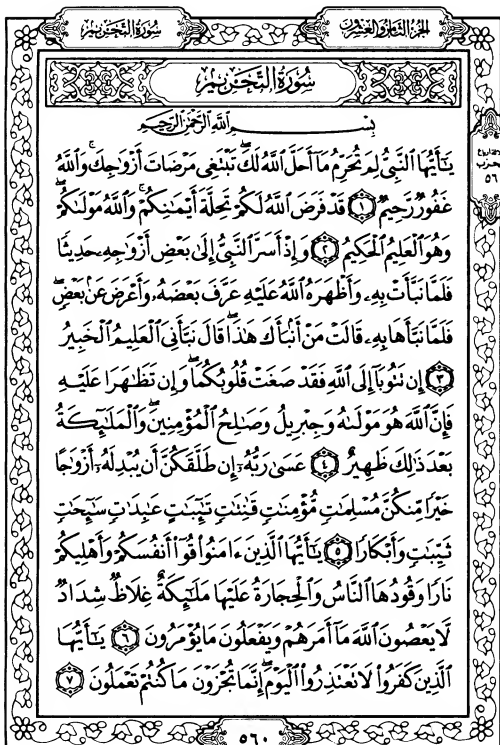 سُورَةُ التَّحْرِيمِ
الجُزْءُ الثَّامِنُ وَالعِشْرُونَ
سُورَةُ التَّحْرِيمِ
بِسْمِ اللَّهِ الرَّحْمَٰنِ الرَّحِيمِ
يَٰٓأَيُّهَا ٱلنَّبِيُّ لِمَ تُحَرِّمُ مَآ أَحَلَّ ٱللَّهُ لَكَۖ تَبْتَغِي مَرْضَاتَ أَزْوَٰجِكَۚ وَٱللَّهُ
غَفُورٌ رَّحِيمٌ ۝١ قَدْ فَرَضَ ٱللَّهُ لَكُمْ تَحِلَّةَ أَيْمَٰنِكُمْۚ وَٱللَّهُ مَوْلَىٰكُمْۖ
وَهُوَ ٱلْعَلِيمُ ٱلْحَكِيمُ ۝٢ وَإِذْ أَسَرَّ ٱلنَّبِيُّ إِلَىٰ بَعْضِ أَزْوَٰجِهِۦ حَدِيثًا
فَلَمَّا نَبَّأَتْ بِهِۦ وَأَظْهَرَهُ ٱللَّهُ عَلَيْهِ عَرَّفَ بَعْضَهُۥ وَأَعْرَضَ عَنۢ بَعْضٍۖ
فَلَمَّا نَبَّأَهَا بِهِۦ قَالَتْ مَنْ أَنۢبَأَكَ هَٰذَاۖ قَالَ نَبَّأَنِيَ ٱلْعَلِيمُ ٱلْخَبِيرُ
۝٣ إِن تَتُوبَآ إِلَى ٱللَّهِ فَقَدْ صَغَتْ قُلُوبُكُمَاۖ وَإِن تَظَٰهَرَا عَلَيْهِ
فَإِنَّ ٱللَّهَ هُوَ مَوْلَىٰهُ وَجِبْرِيلُ وَصَٰلِحُ ٱلْمُؤْمِنِينَۖ وَٱلْمَلَٰٓئِكَةُ
بَعْدَ ذَٰلِكَ ظَهِيرٌ ۝٤ عَسَىٰ رَبُّهُۥٓ إِن طَلَّقَكُنَّ أَن يُبْدِلَهُۥٓ أَزْوَٰجًا
خَيْرًا مِّنكُنَّ مُسْلِمَٰتٍ مُّؤْمِنَٰتٍ قَٰنِتَٰتٍ تَٰٓئِبَٰتٍ عَٰبِدَٰتٍ سَٰٓئِحَٰتٍ
ثَيِّبَٰتٍ وَأَبْكَارًا ۝٥ يَٰٓأَيُّهَا ٱلَّذِينَ ءَامَنُوا۟ قُوٓا۟ أَنفُسَكُمْ وَأَهْلِيكُمْ
نَارًا وَقُودُهَا ٱلنَّاسُ وَٱلْحِجَارَةُ عَلَيْهَا مَلَٰٓئِكَةٌ غِلَاظٌ شِدَادٌ
لَّا يَعْصُونَ ٱللَّهَ مَآ أَمَرَهُمْ وَيَفْعَلُونَ مَا يُؤْمَرُونَ ۝٦ يَٰٓأَيُّهَا
ٱلَّذِينَ كَفَرُوا۟ لَا تَعْتَذِرُوا۟ ٱلْيَوْمَۖ إِنَّمَا تُجْزَوْنَ مَا كُنتُمْ تَعْمَلُونَ ۝٧
الحزب
٥٦
٥٦٠